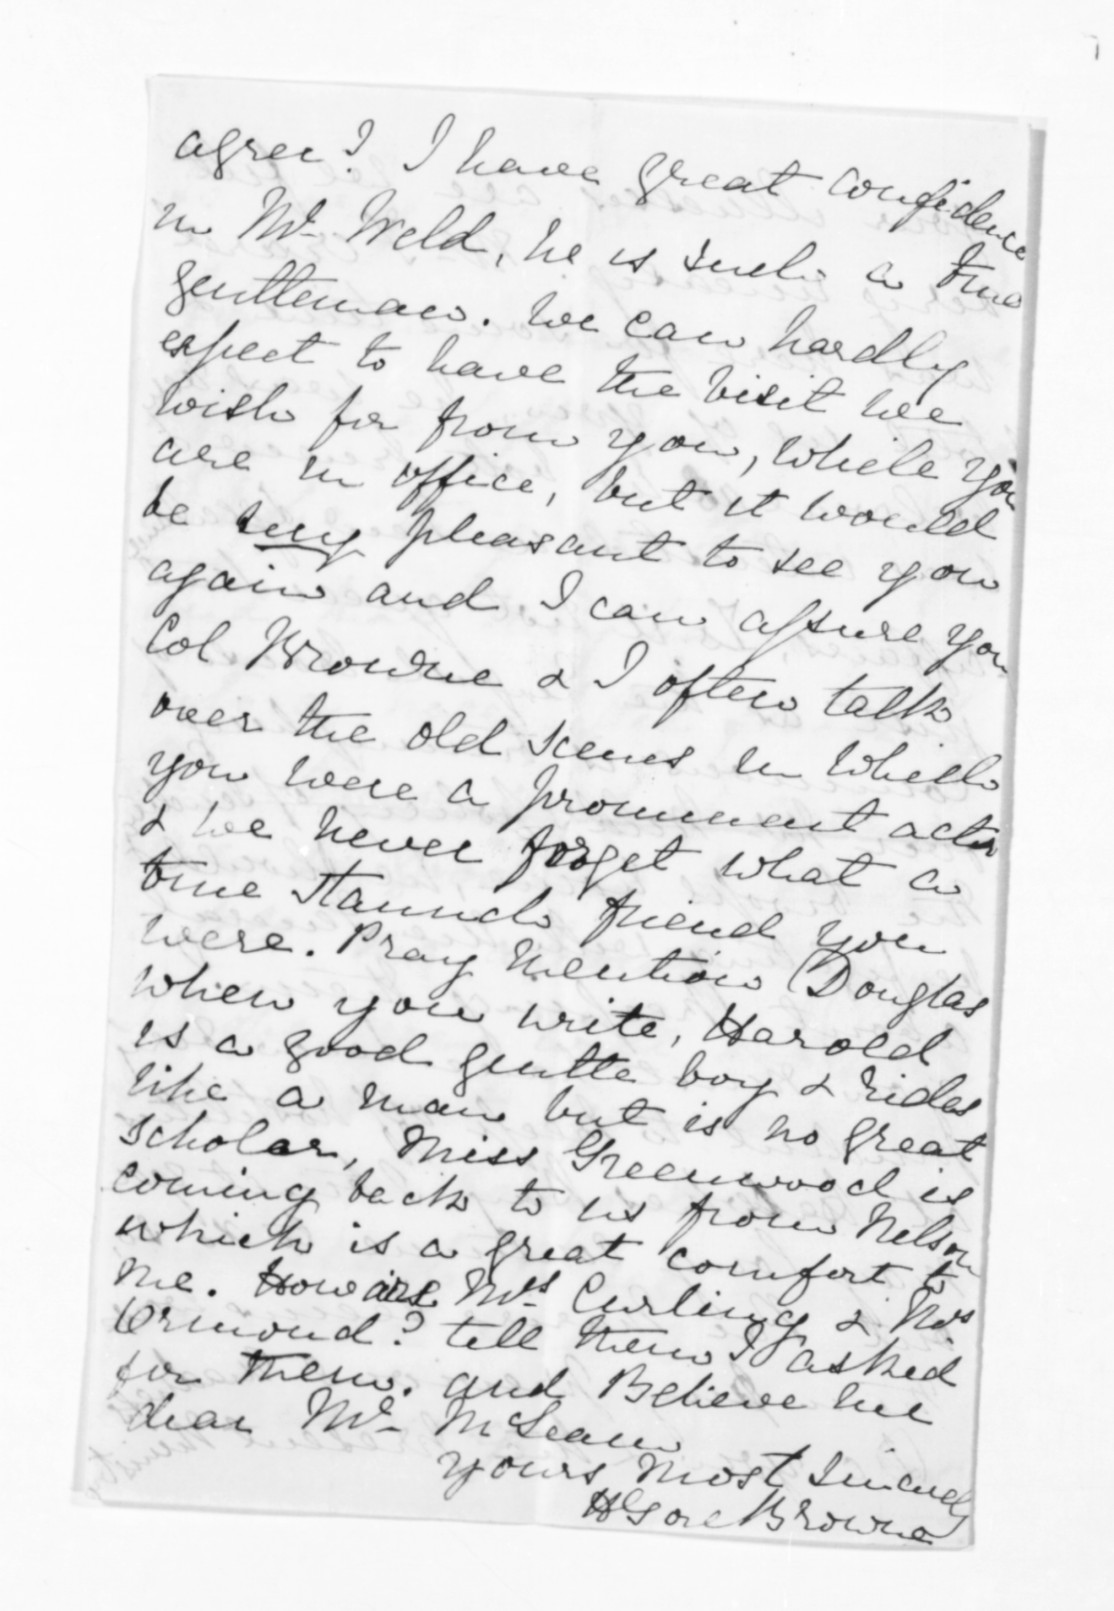 agree? I have great confidence
in Mr Weld, he is such a true
gentleman. We can hardly
expect to have the visit we
wish for from you, while you
are in office, but it would
be very pleasant to see you
again and I can assure you
Col Browne & I often talk
over the old scenes in which
you were a prominent actor
& we never forget what a
true staunch friend you
were. Pray mention Douglas
when you write, Harold
is a good gentle boy & rides
like a man but is no great
scholar, Miss Greenwood is
coming back to us from Nelson
which is a great comfort to
me. How are Mrs Curling & Mrs
Ormond? tell them I asked
for them. and Believe me
dear Mr McLean
yours most sincerely
HGore Browne